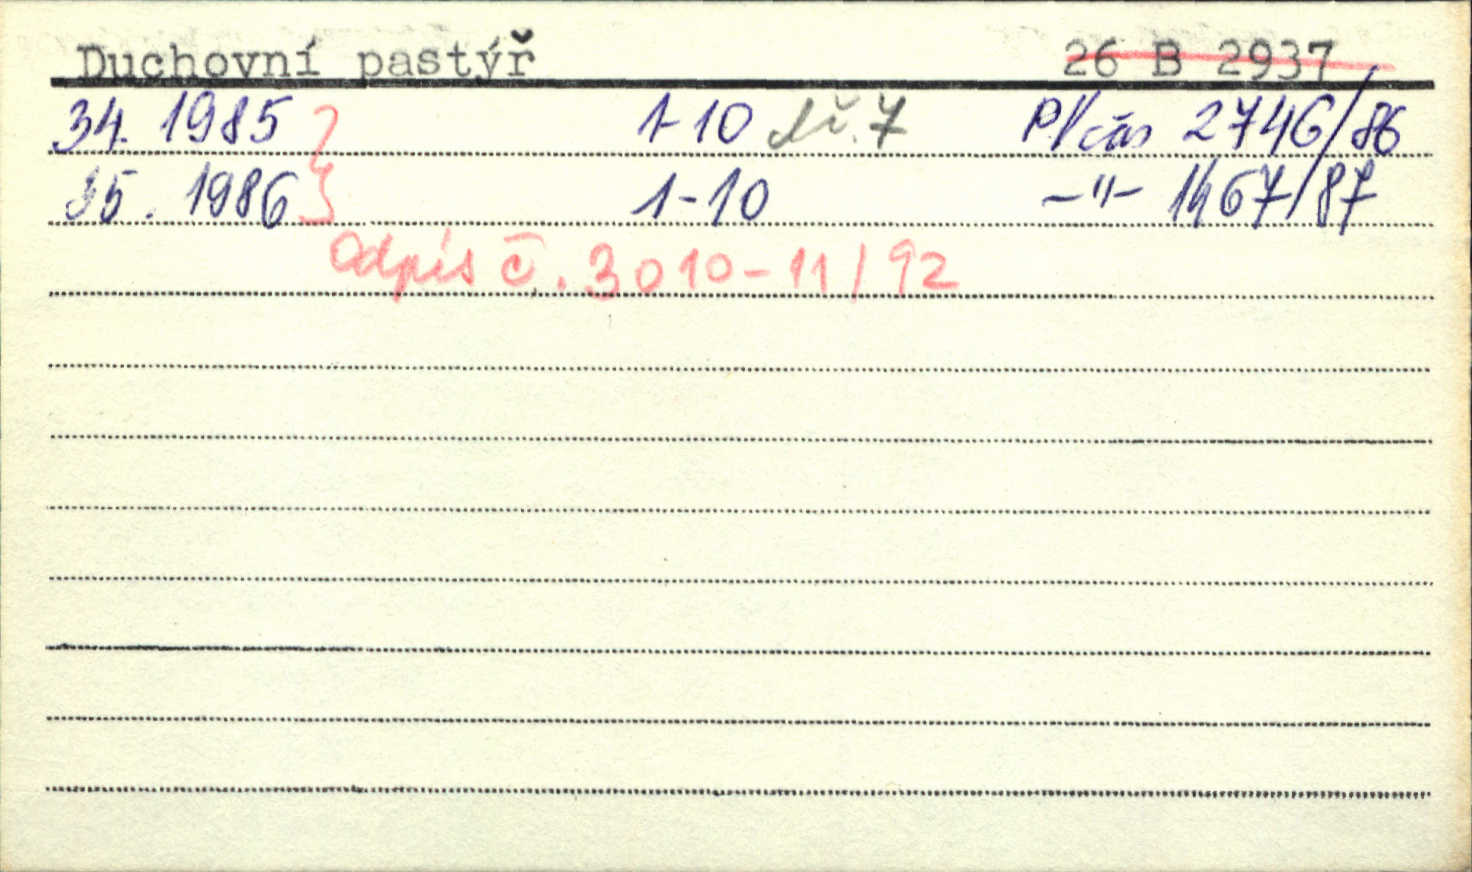 Duchovní pastýř 26 B 2937
34. 1985 1-10 č. 7 P/čas 2746/86
35. 1986 1-10 -"- 1467/87
Odpis č. 3010-11/92